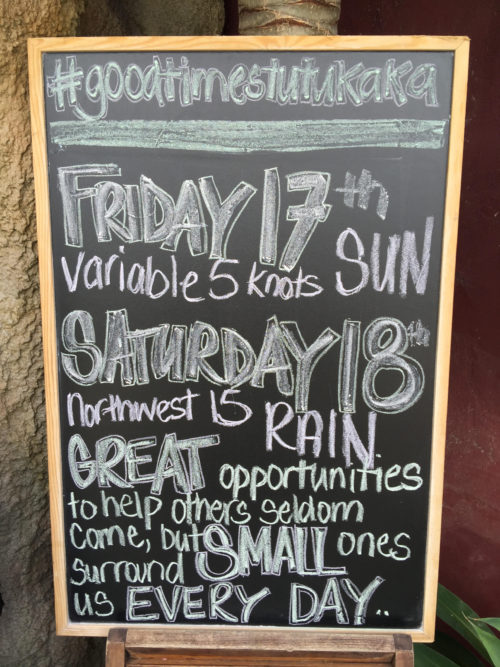 #goodtimestutukaka
FRIDAY 17th
variable 5 knots SUN
SATURDAY 18th
northwest 15 RAIN.
GREAT opportunities
to help others seldom
come, but SMALL ones
surround
us EVERY DAY..